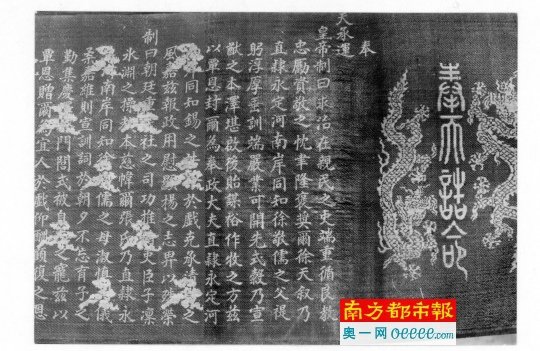 奉天誥命
奉
天承運
皇帝制曰求治在親民之吏端重循良教
忠勵資敬之忱聿隆褒奬爾徐天敘乃
直隸永定河南岸同知徐敬儒之父禔
躬淳厚垂訓端嚴業可開先式穀乃宣
猷之本澤堪啟後貽謀裕作牧之方茲
以覃恩封爾為奉政大夫直隸永定河
南岸同知錫之誥命於戲克承清
風嘉茲報政用慰顯揚之志畀以殊榮
制曰朝廷重民社之司功推循吏臣子凜
氷淵之操教本慈幃爾張氏乃直隸永
定河南岸同知徐敬儒之母淑慎其儀
柔嘉維則宣訓詞於朝夕不忘育子之
勤集慶澤於門閭式被自天之寵茲以
覃恩贈爾為宜人於戲仰酬顧復之恩
南方都市報
奧一網 oeeee.com